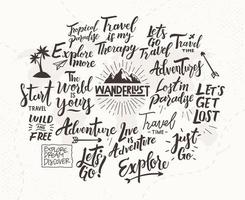 Tropical
Paradise
Travel
is my
Therapy
Let's
Go
Travel
Travel
TIME
Explore
more
Adventures
The
World
is
Yours
WANDERLUST
Lost in
Paradise
Start
TRAVEL
LET'S
GET
LOST
WILD
AND THE
FREE
Adventure
Live is
Adventure
Travel
TIME
Just-
Go!
EXPLORE
DREAM
DISCOVER
Let's
Go!
Explore